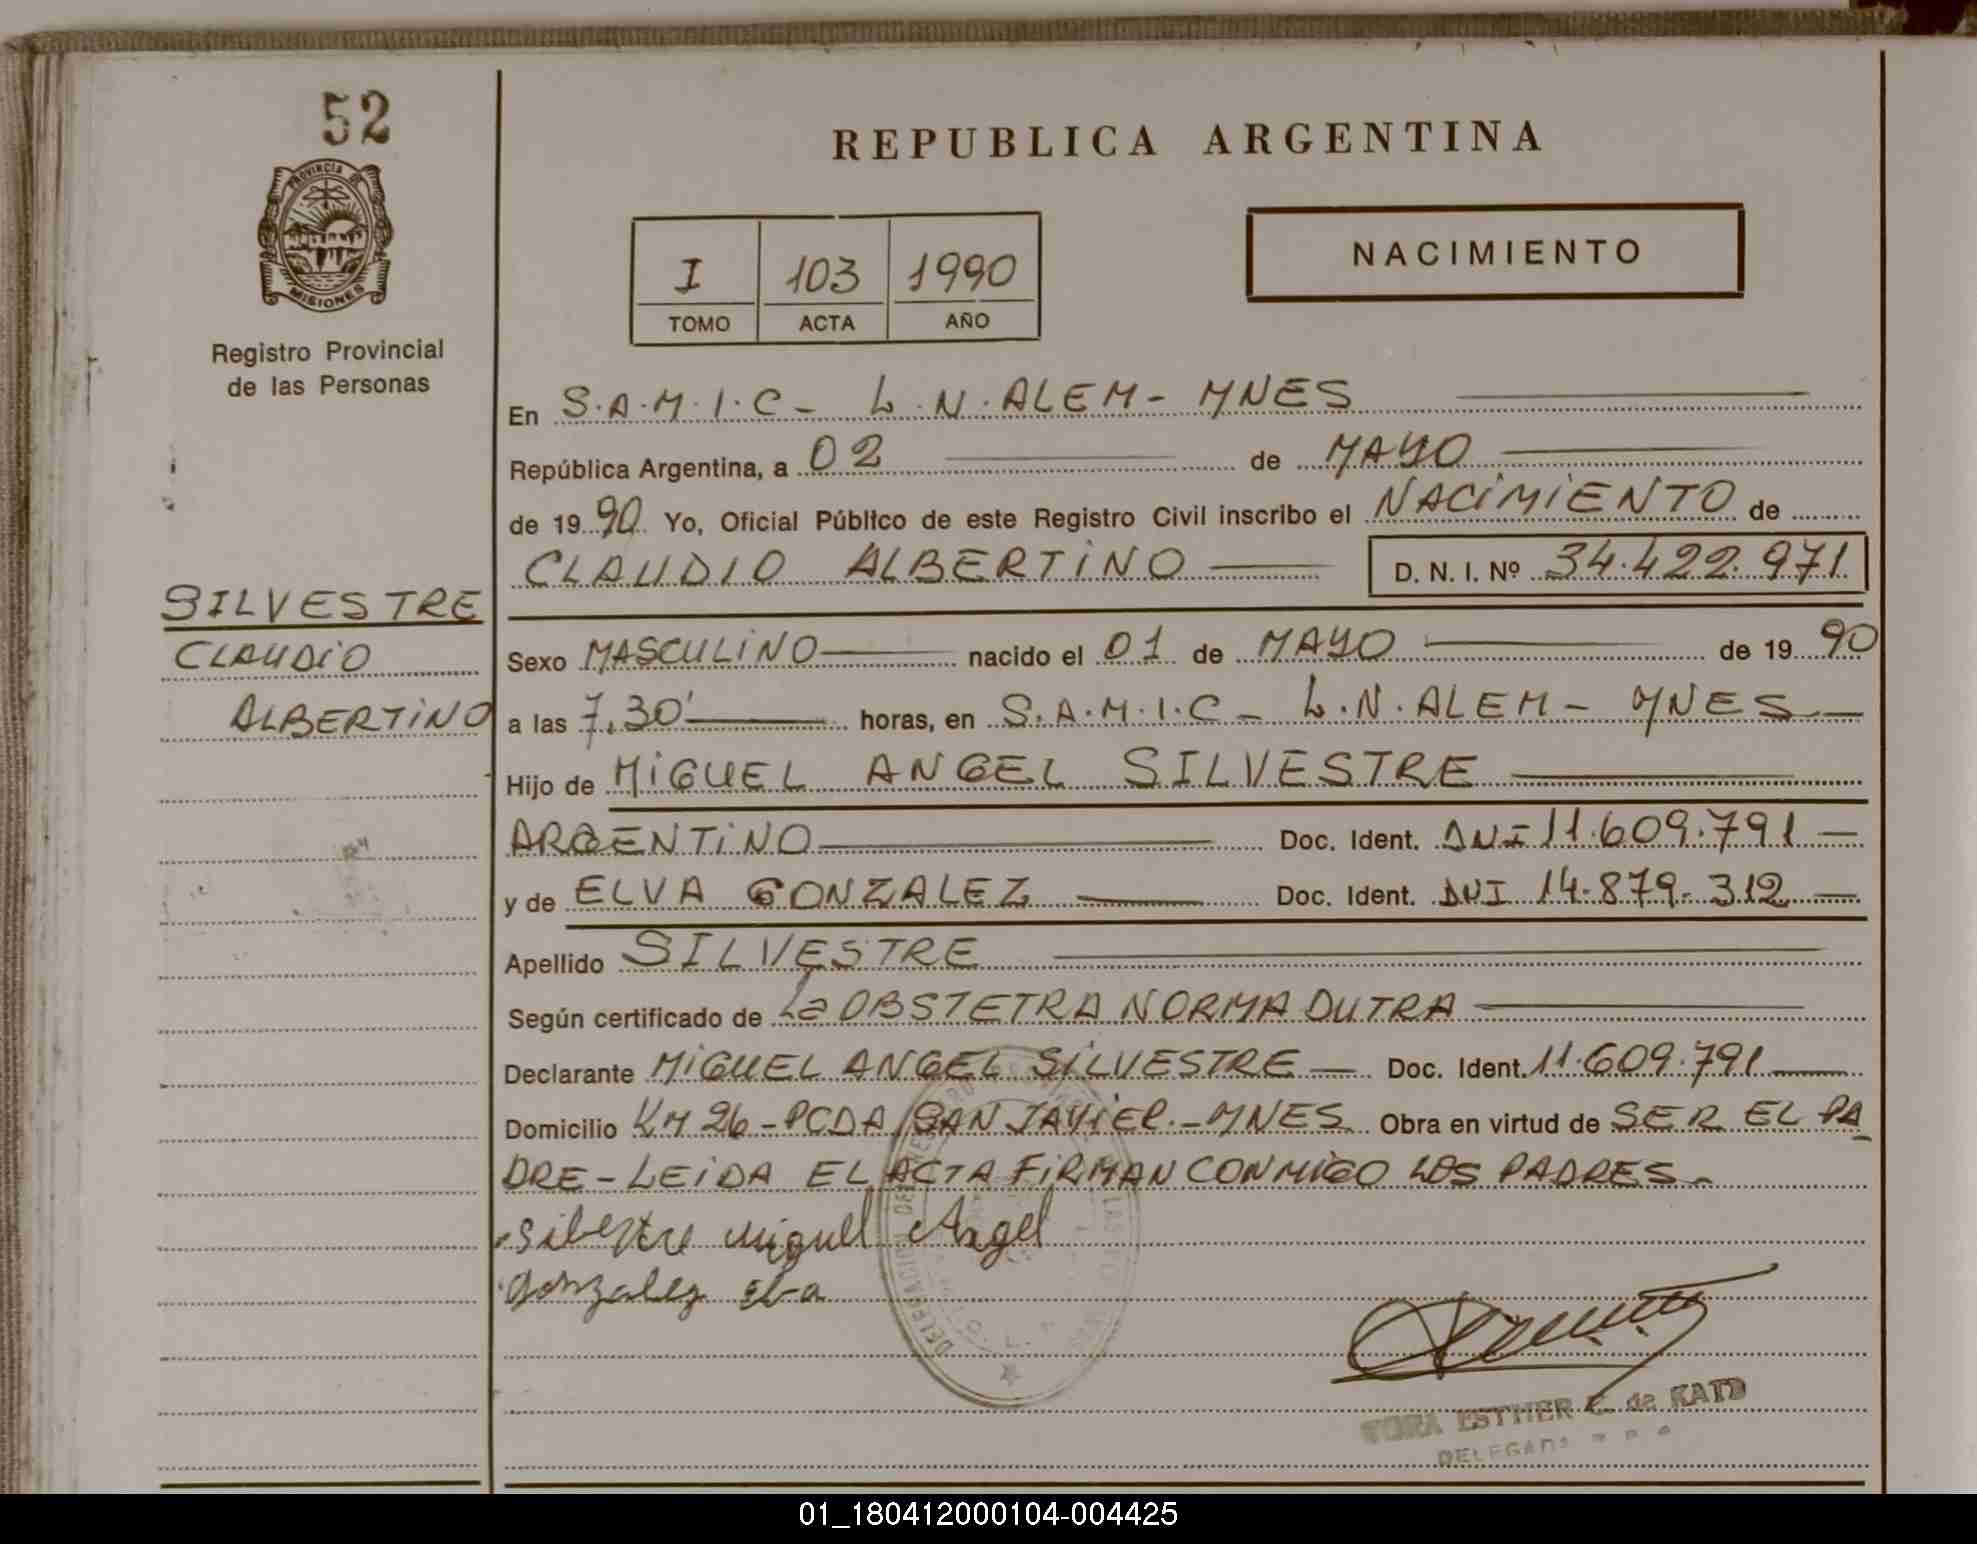 52
PROVINCIA DE
MISIONES
Registro Provincial
de las Personas
SILVESTRE
CLAUDIO
ALBERTINO
REPUBLICA ARGENTINA
I 103 1990
TOMO ACTA AÑO
NACIMIENTO
En S.A.M.I.C - L.N.ALEM - MNES
República Argentina, a 02 de MAYO
de 1990 Yo, Oficial Público de este Registro Civil inscribo el NACIMIENTO de
CLAUDIO ALBERTINO D. N. I. Nº 34.422.971
Sexo MASCULINO nacido el 01 de MAYO de 1990
a las 7,30' horas, en S.A.M.I.C - L.N.ALEM - MNES
Hijo de MIGUEL ANGEL SILVESTRE
ARGENTINO Doc. Ident. DNI 11.609.791
y de ELVA GONZALEZ Doc. Ident. DNI 14.879.312
Apellido SILVESTRE
Según certificado de La OBSTETRA NORMA DUTRA
Declarante MIGUEL ANGEL SILVESTRE Doc. Ident. 11.609.791
Domicilio KM 26 - PCDA SAN JAVIER.- MNES Obra en virtud de SER EL PA
DRE - LEIDA EL ACTA FIRMAN CONMIGO LOS PADRES.
Silvestre miguel Angel
Gonzalez
ESTHER E. de KATO
DELEGADA
01_180412000104-004425